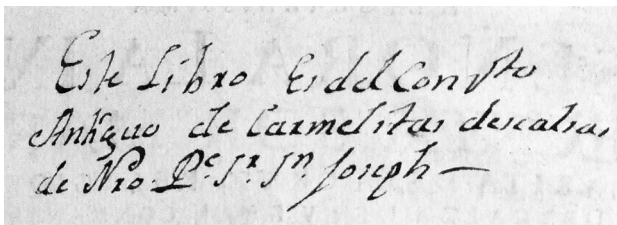 Este Libro Es del Conv.to
Antiguo de Carmelitas descalsas
de Nro. Pe. Sr. Sn. Joseph